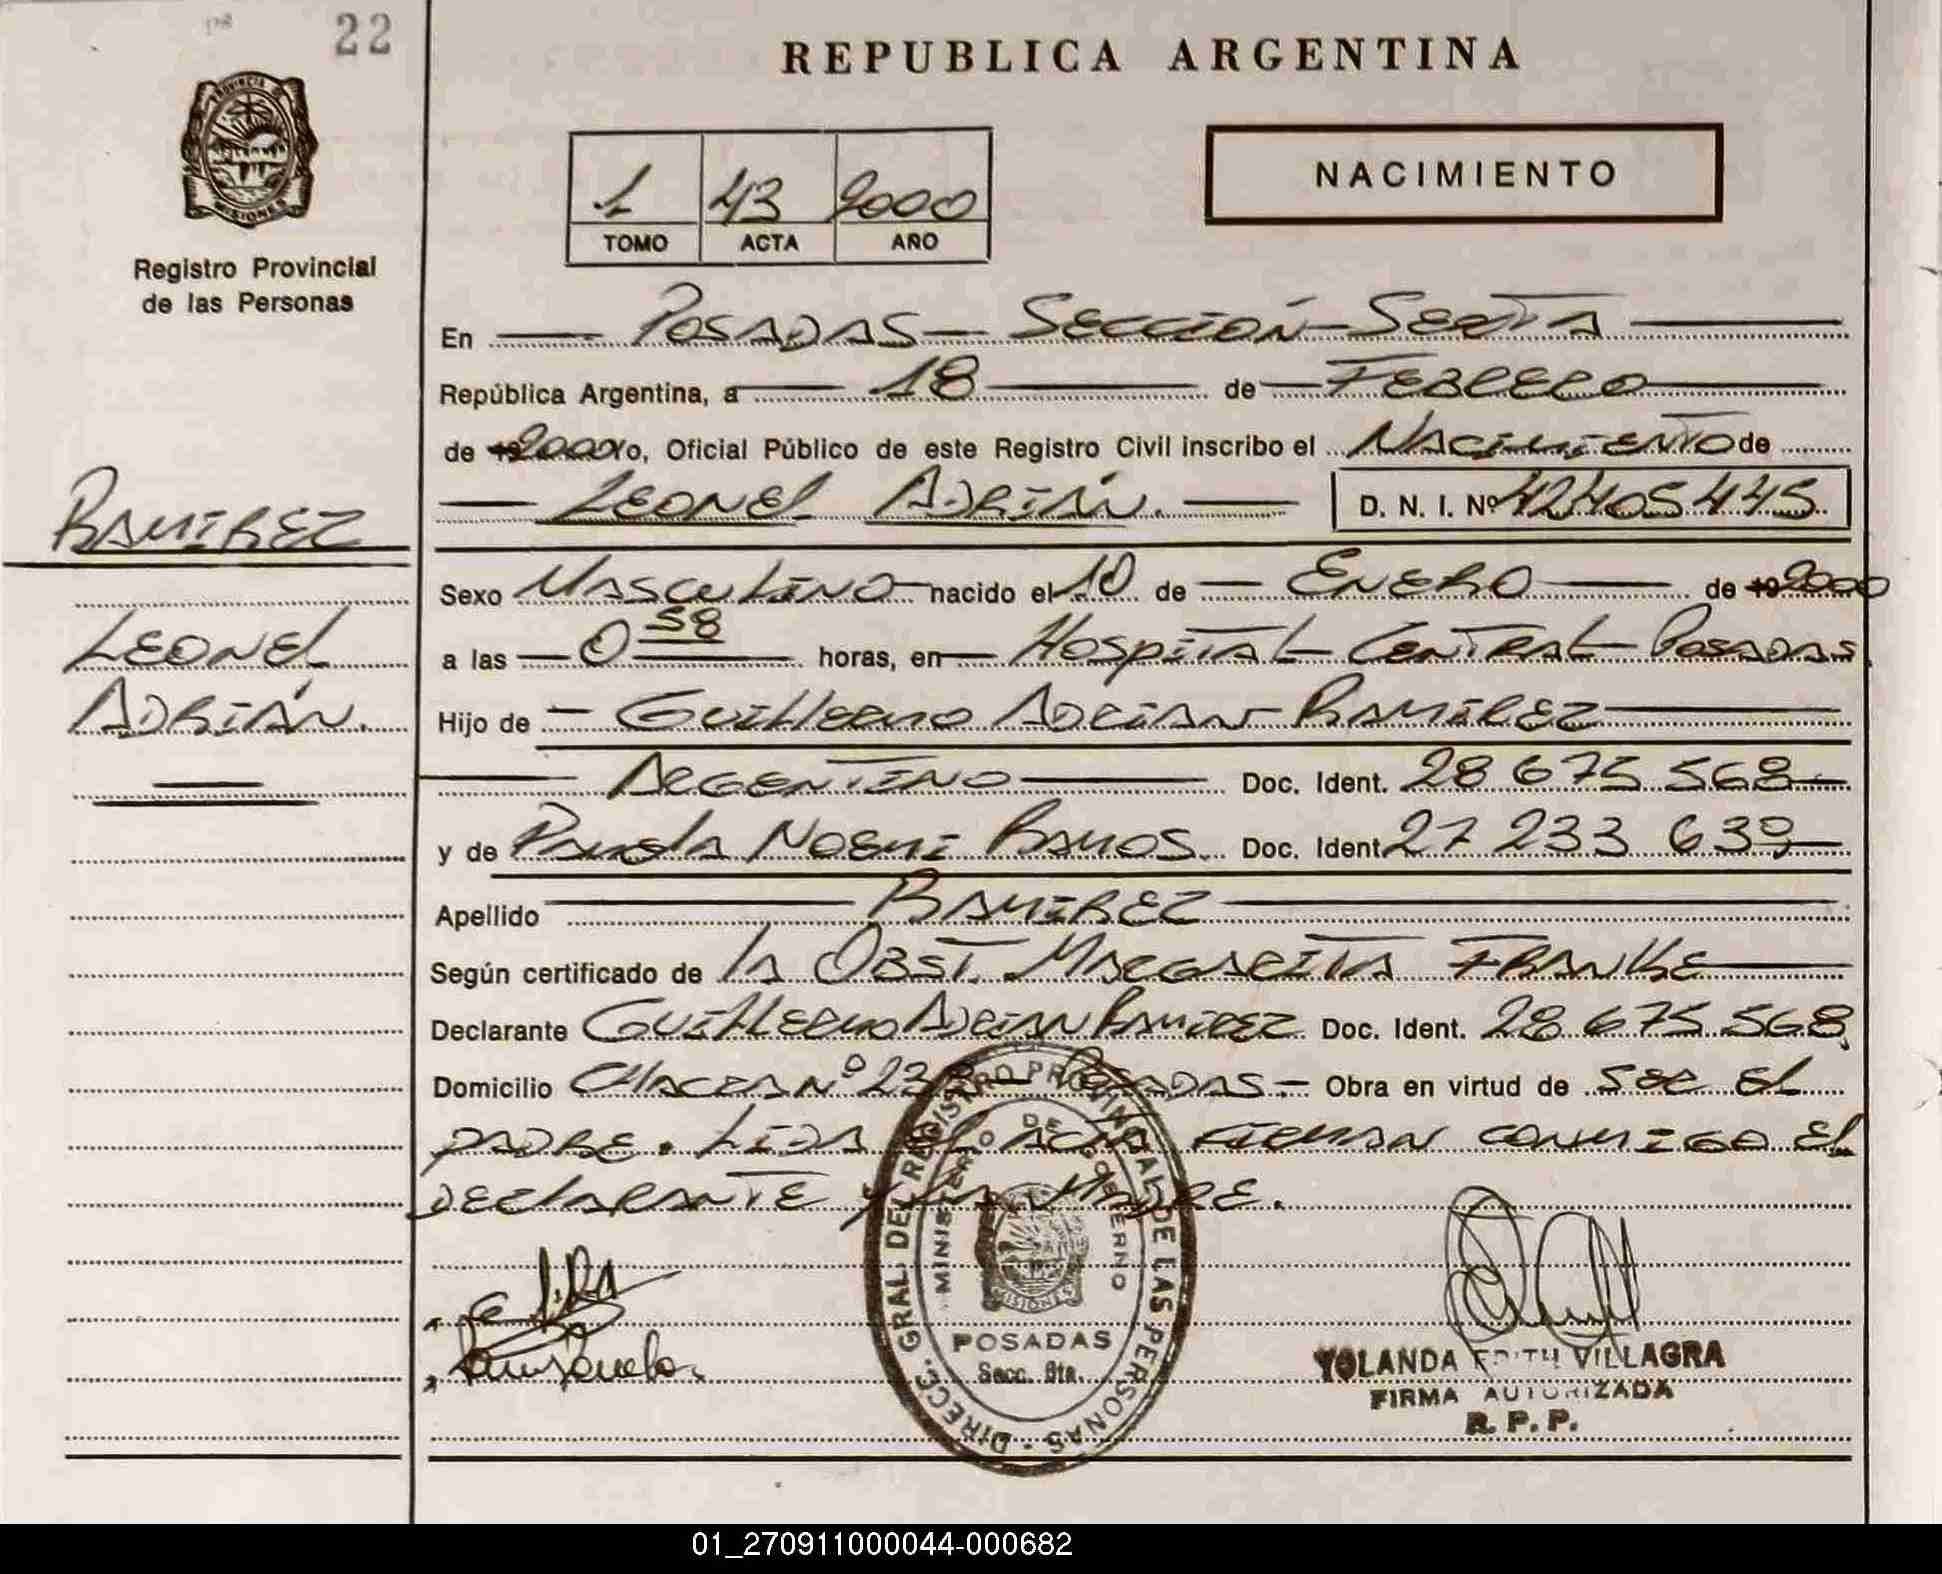 22
REPUBLICA ARGENTINA
PROVINCIA DE
MISIONES
Registro Provincial
de las Personas
1 43 2000
TOMO ACTA AÑO
NACIMIENTO
En POSADAS - SECCIÓN - SEXTA
República Argentina, a 18 de FEBRERO
de 2000 yo, Oficial Público de este Registro Civil inscribo el NACIMIENTO de
LEONEL ADRIÁN. D. N. I. Nº 42405445
RAMIREZ
LEONEL
ADRIÁN.
Sexo MASCULINO nacido el 10 de ENERO de 19 2000
a las 0 58 horas, en HOSPITAL CENTRAL POSADAS
Hijo de GUILLERMO ADRIAN RAMIREZ
ARGENTINO Doc. Ident. 28 675 568
y de PAMELA NOEMI RAMOS Doc. Ident. 27 233 639
Apellido RAMIREZ
Según certificado de LA OBST. MARGARITA FRANKE
Declarante GUILLERMO ADRIAN RAMIREZ Doc. Ident. 28 675 568
Domicilio CHACRA Nº POSADAS. Obra en virtud de SER EL
PADRE. LEIDA EL ACTA FIRMAN CONMIGO EL
DECLARANTE Y LA MADRE.
DIRECC. GRAL. DEL REGISTRO PROVINCIAL DE LAS PERSONAS
MINISTERIO DE GOBIERNO
MISIONES
POSADAS
Secc. 6ta.
YOLANDA EDITH VILLAGRA
FIRMA AUTORIZADA
R. P. P.
01_270911000044-000682